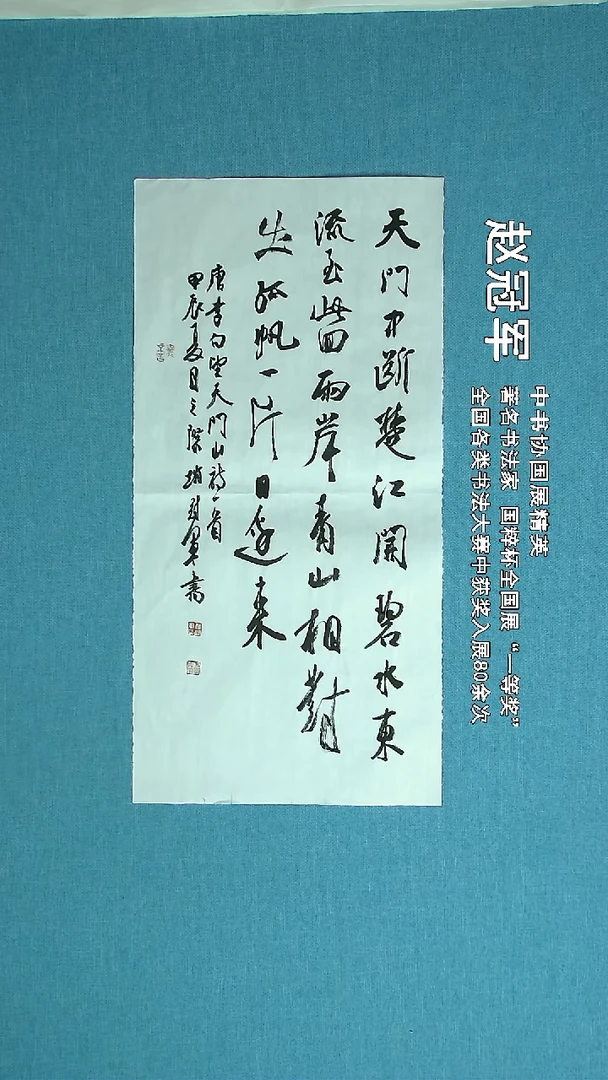 赵冠军
中书协国展精英
著名书法家 国粹杯全国展“一等奖”
全国各类书法大赛中获奖入展80余次
天門中斷楚江開碧水東
流至此回兩岸青山相對
出孤帆一片日邊來
唐李白望天門山詩一首
甲辰夏月之際趙冠軍書